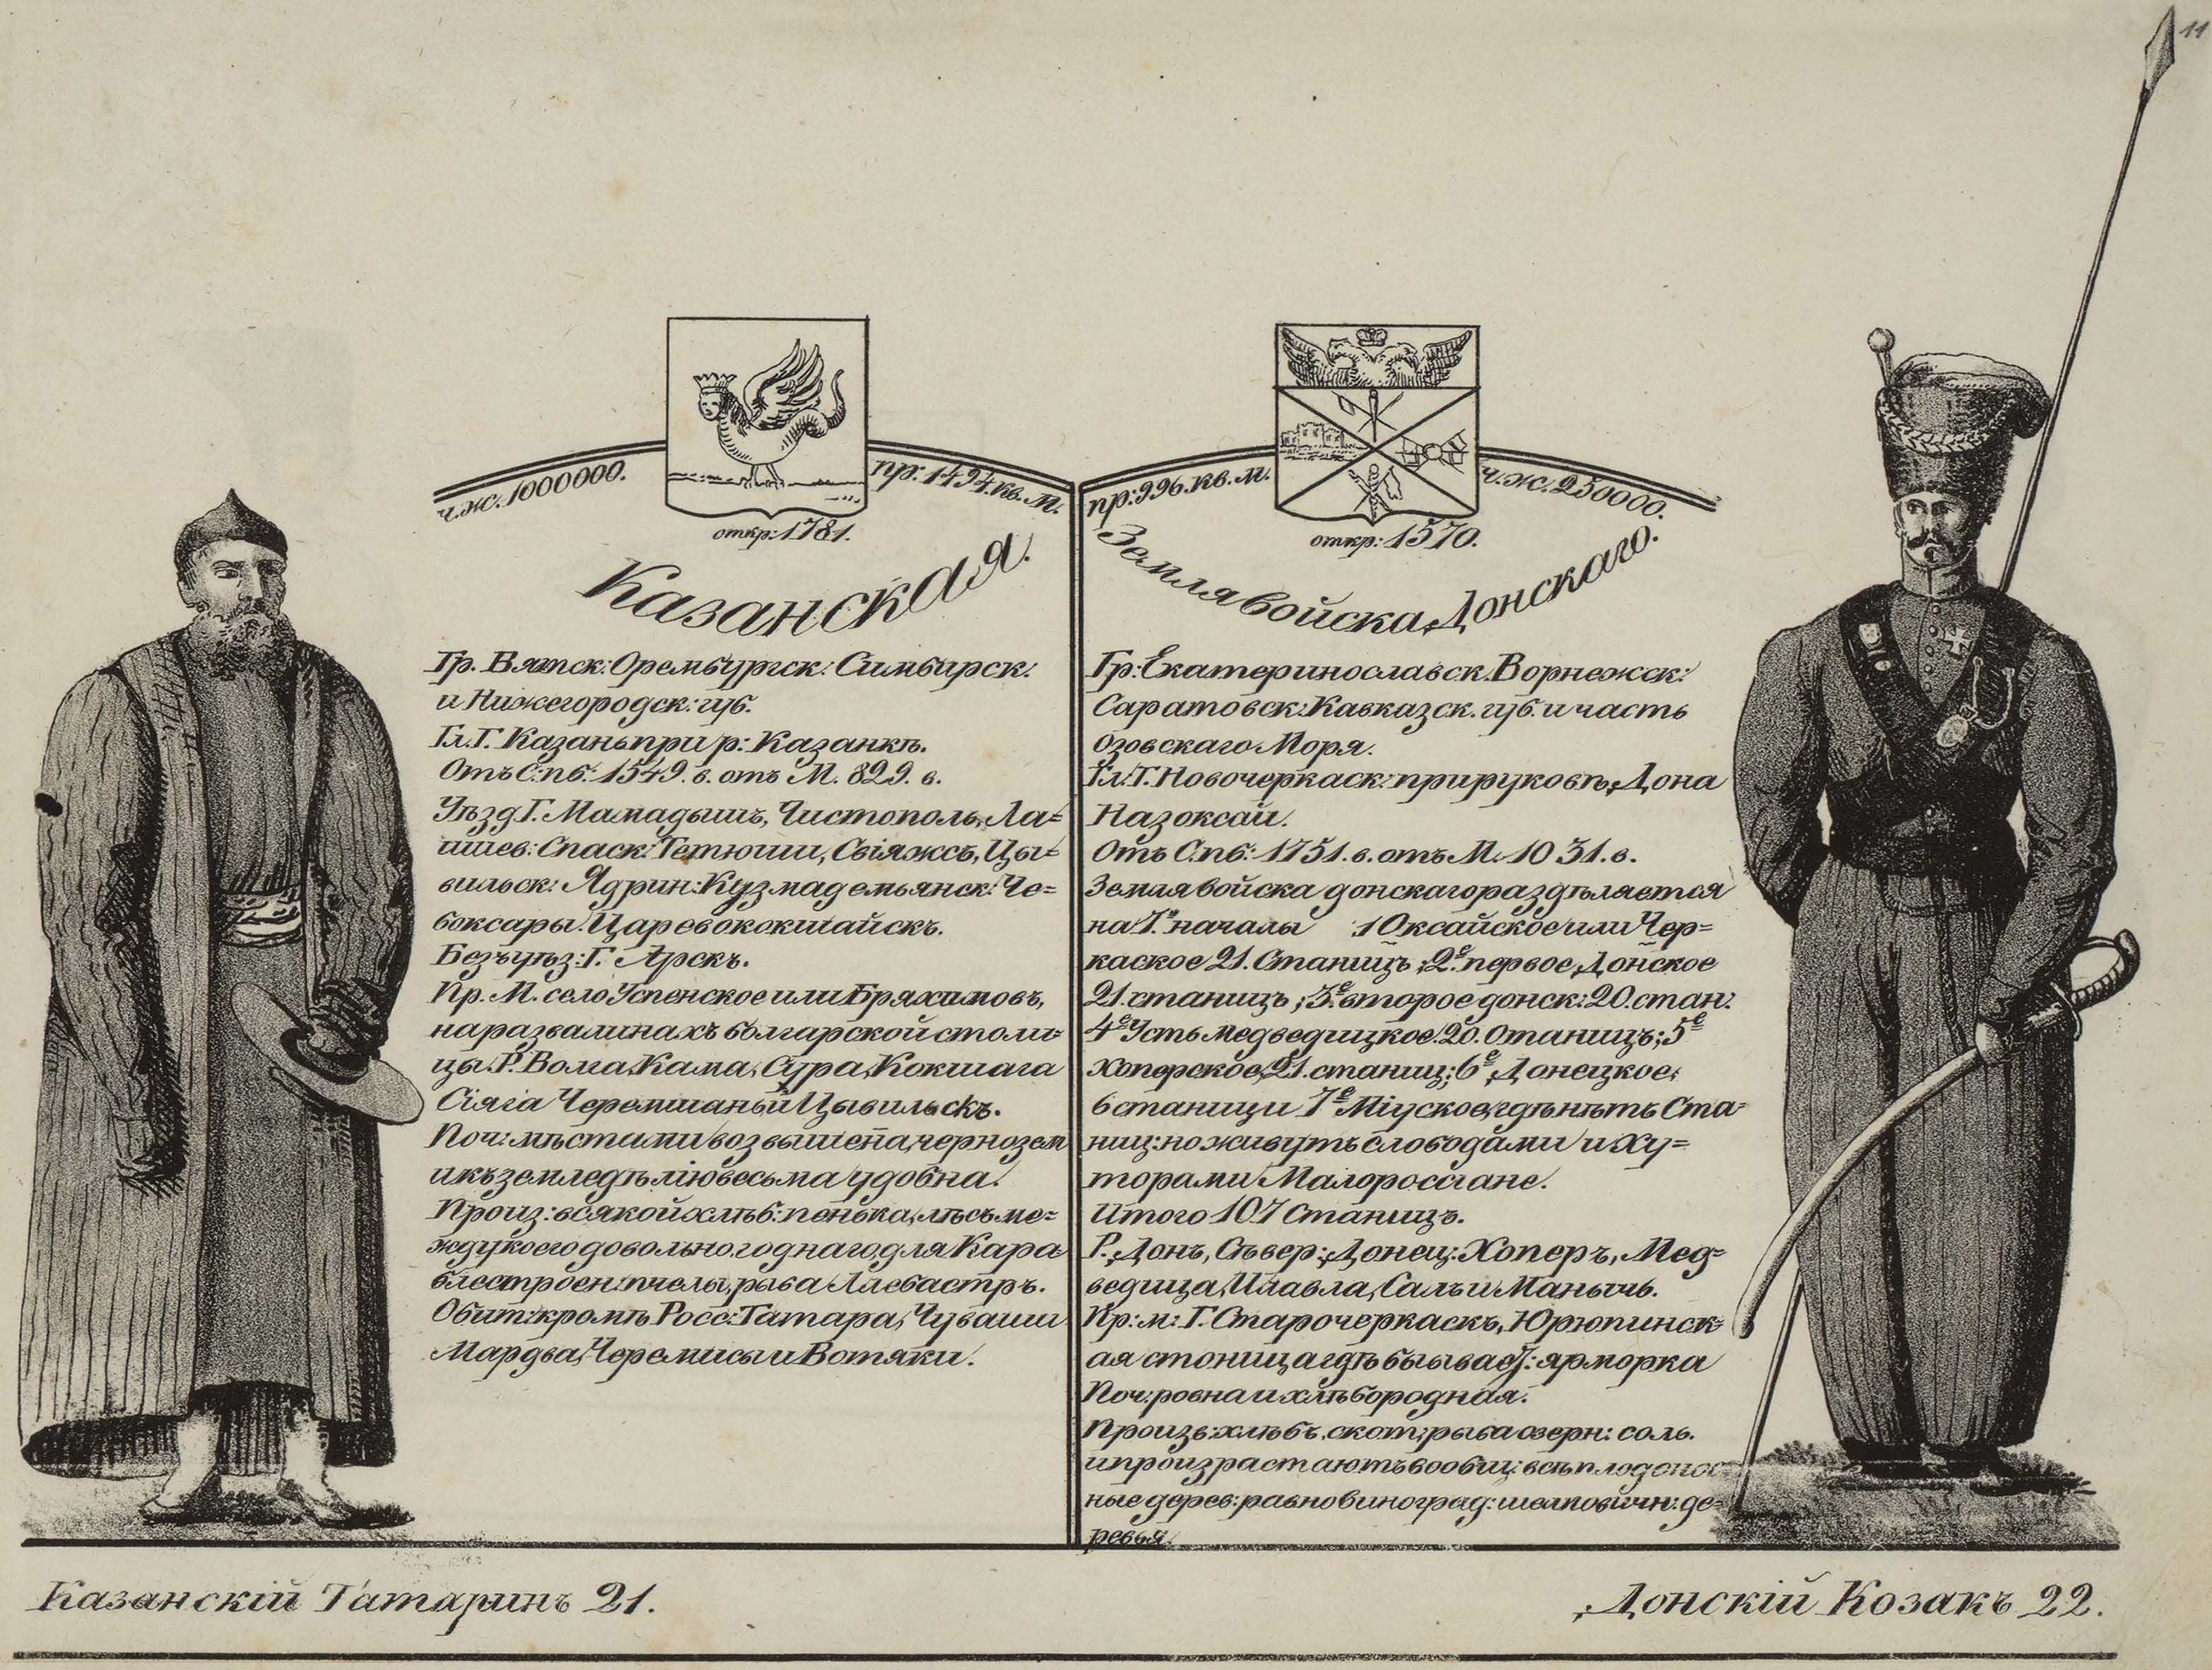 11
ч. ж. 1000000.
пр: 1494. кв. м.
откр: 1781.
Казанская.
Гр. Вятск: Орембургск: Симбирск:
и Нижегородск: губ.
Гл. Г. Казань при р: Казанкѣ.
Отъ С: пб: 1549. в. отъ М. 829. в.
Уѣзд Г. Мамадышъ, Чистополь, Ла=
ишев: Спаск: Тетюши, Свіяжсъ, Цы=
вильск: Ядрин: Кузмадемьянск: Че=
боксары: Царевококшайскъ.
Безъ уѣз: Г. Арскъ.
Пр. М. село Успенское или Бряхимовъ,
на развалинахъ болгарской столи=
цы. Р. Волга, Кама, Сура, Кокшага
Сіяга Черемшаный Цывильскъ.
Поч: мѣстами возвышена, чернозем
и къ земледѣлію весьма удобна.
Произ: всякой хлѣб: пенька, лѣсъ ме=
жду коего довольно годнаго для Кара
блестроен: пчелы, рыба Алебастръ.
Обит: кромѣ Росс: Татара, Чуваши
Мордва, Черемисы и Вотяки.
пр: 996. кв. м.
ч. ж. 250000.
откр: 1570.
Земля войска Донскаго.
Гр: Екатеринославск. Ворнежск:
Саратовск: Кавказск. губ. и часть
Озовскаго Моря.
Гл. Г. Новочеркаск: при руковѣ Дона
Назоксай.
Отъ С: пб: 1751. в. отъ М. 1031. в.
Земля войска донскаго раздѣляется
на 7. началы 1 Оксайское или Чер=
каское 21. Станицъ, 2е. первое Донское
21. станицъ, 3е. второе донск: 20. стан:
4е Усть медведицкое. 20. Станицъ; 5е
Хоперское, 21. станиц; 6е Донецкое,
6 станиц и 7е Міуское, гдѣ нѣтъ Ста=
ниц: но живутъ слободами и Ху=
торами Малороссіане.
Итого 107 Станицъ.
Р. Донъ, Сѣвер: Донец: Хоперъ, Мед=
ведица, Илавла, Салъ и Манычь.
Пр: м: Г. Старочеркаскъ, Юрюпинск=
ая станица гдѣ бывает: ярморка
Поч: ровна и хлѣбородная.
Произв: хлѣбъ, скот: рыба озерн: соль.
и произрастаютъ вообщ: всѣ плодонос
ные дерев: равно виноград: шелповичн: де=
ревья.
Казанскій Татаринъ 21.
Донскій Козакъ 22.